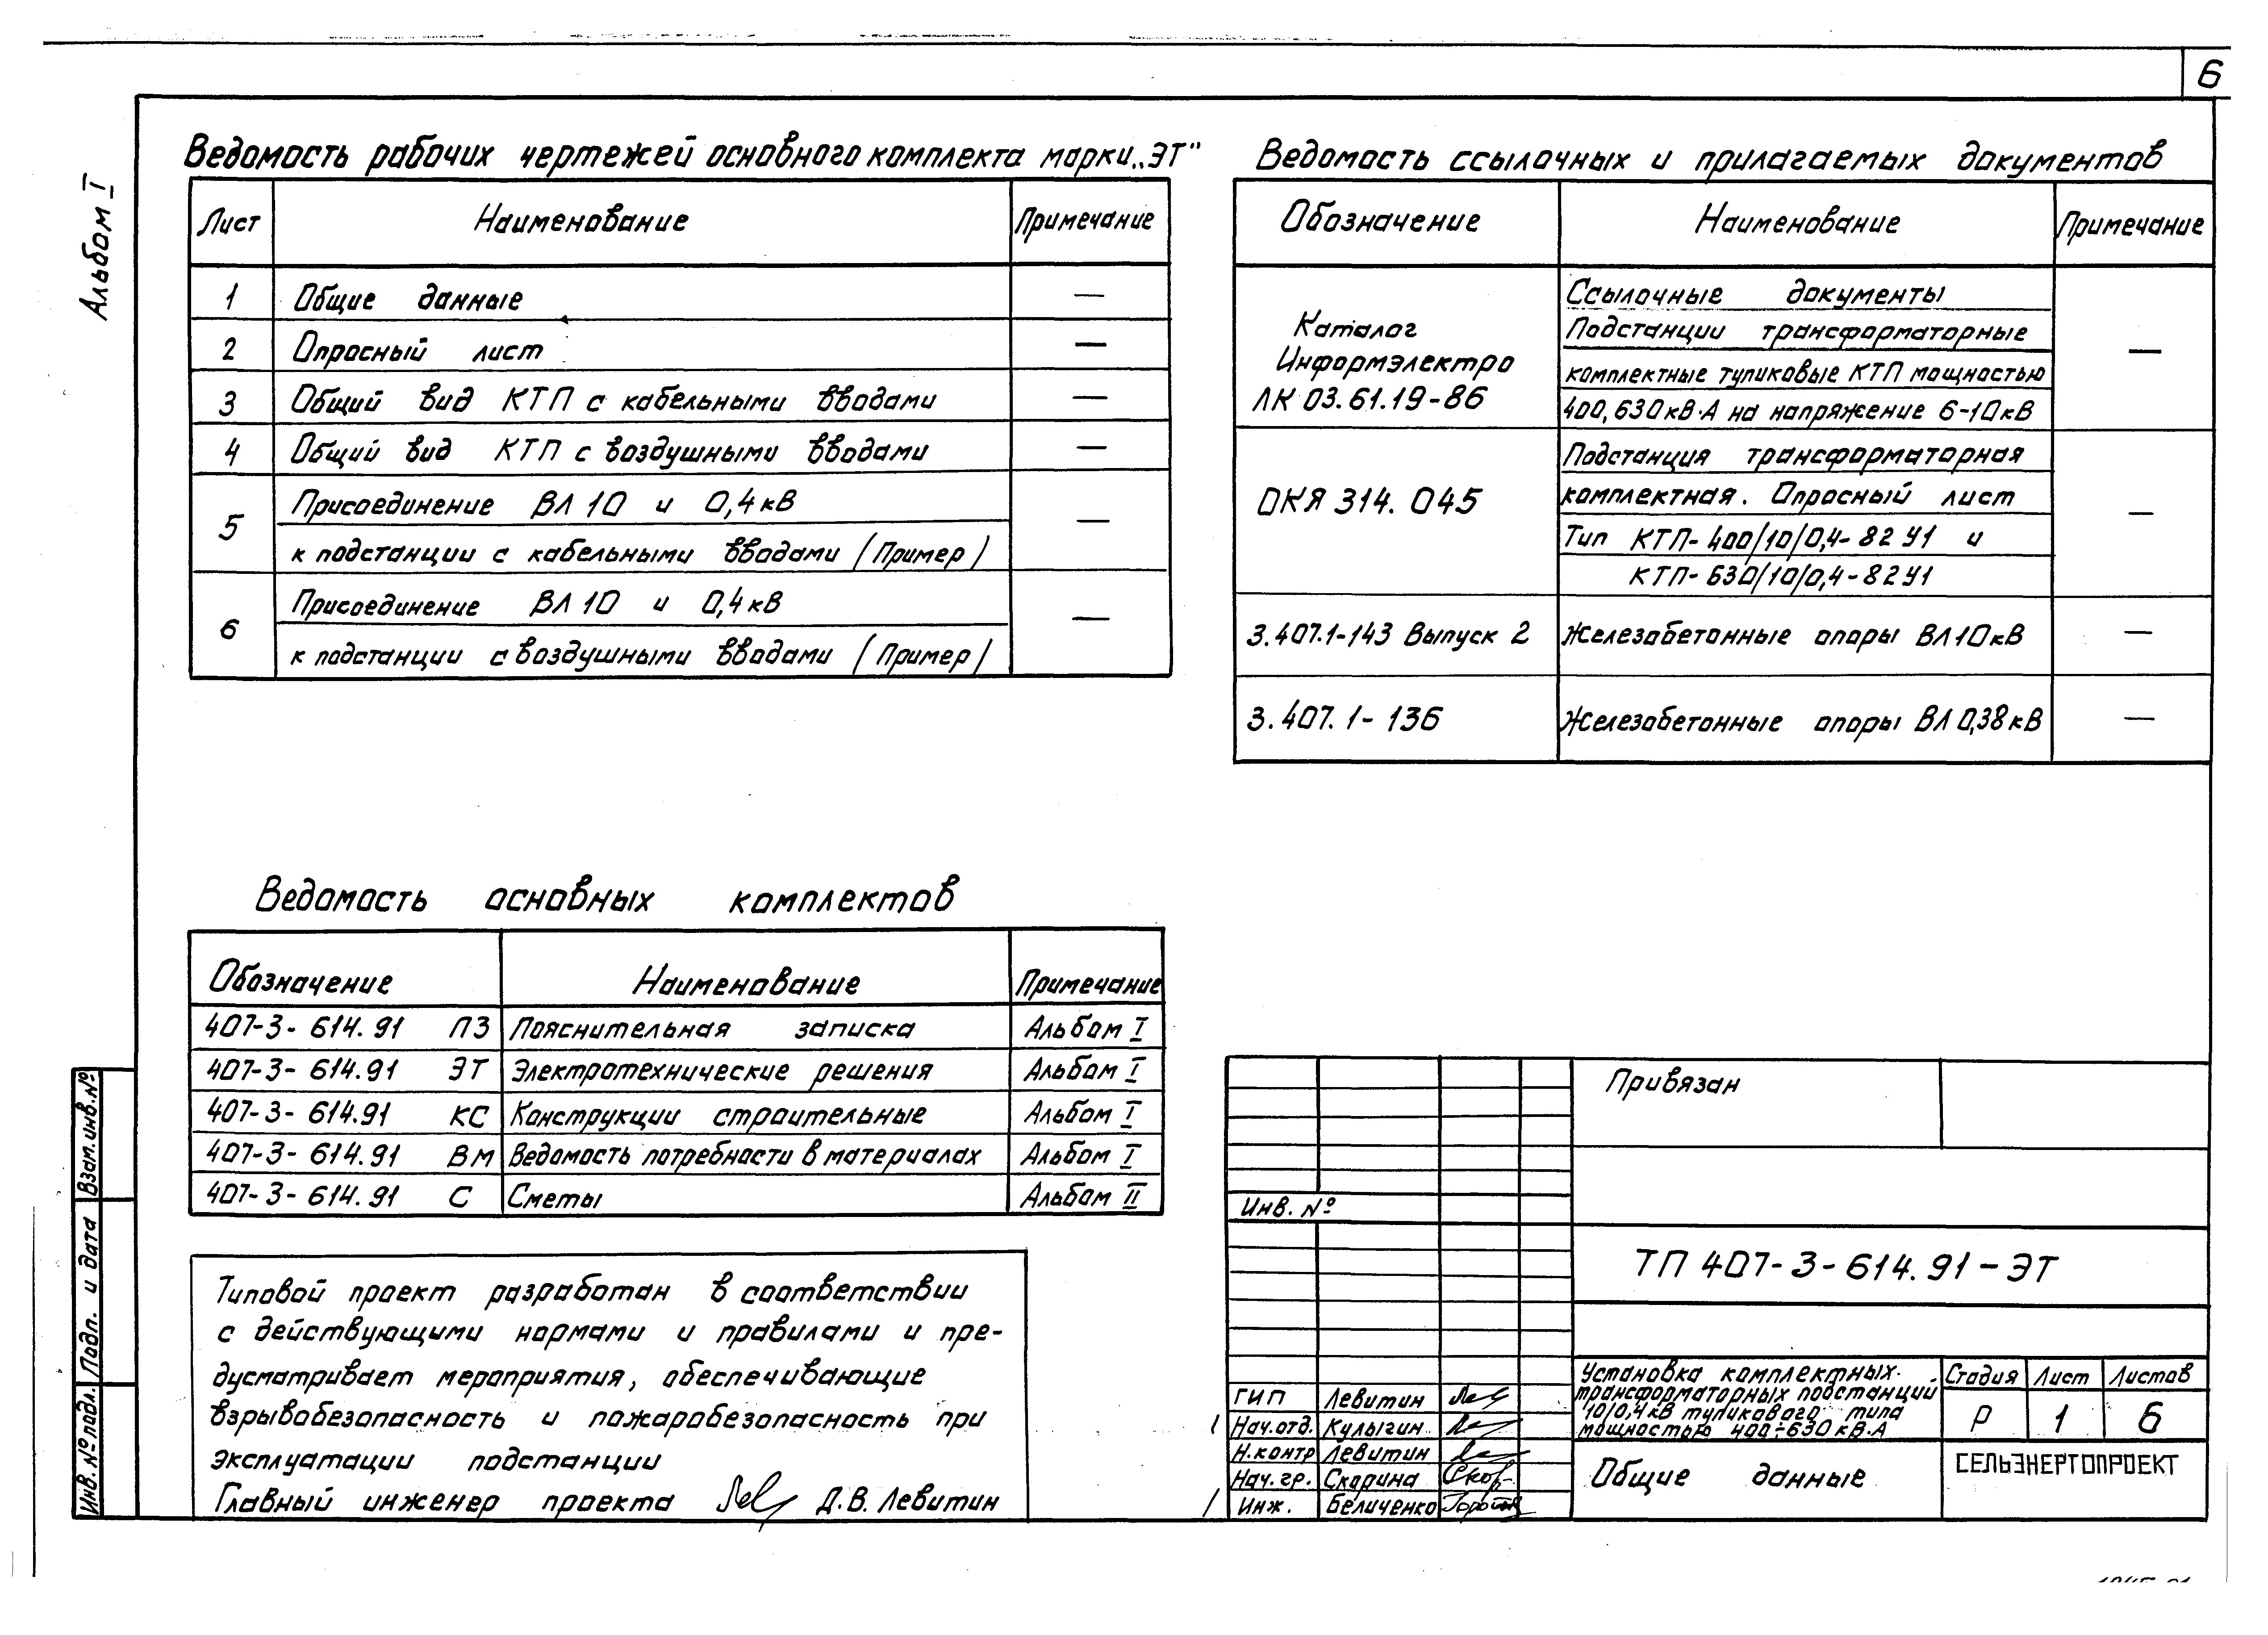 6
Альбом I
Ведомость рабочих чертежей основного комплекта марки „ЭТ"
Лист Наименование Примечание
1 Общие данные —
2 Опросный лист —
3 Общий вид КТП с кабельными вводами —
4 Общий вид КТП с воздушными вводами —
5 Присоединение ВЛ 10 и 0,4 кВ
к подстанции с кабельными вводами (Пример) —
6 Присоединение ВЛ 10 и 0,4 кВ
к подстанции с воздушными вводами (Пример) —
Ведомость ссылочных и прилагаемых документов
Обозначение Наименование Примечание
Каталог
Информэлектро
ЛК 03.61.19-86
Ссылочные документы
Подстанции трансформаторные
комплектные тупиковые КТП мощностью
400, 630 кВ·А на напряжение 6-10 кВ
—
ОКЯ 314. 045
Подстанция трансформаторная
комплектная. Опросный лист
Тип КТП-400/10/0,4-82 У1 и
КТП-630/10/0,4-82У1
—
3.407.1-143 Выпуск 2 Железобетонные опоры ВЛ 10 кВ —
3.407.1-136 Железобетонные опоры ВЛ 0,38 кВ —
Ведомость основных комплектов
Обозначение Наименование Примечание
407-3-614.91 ПЗ Пояснительная записка Альбом I
407-3-614.91 ЭТ Электротехнические решения Альбом I
407-3-614.91 КС Конструкции строительные Альбом I
407-3-614.91 ВМ Ведомость потребности в материалах Альбом I
407-3-614.91 С Сметы Альбом II
Типовой проект разработан в соответствии
с действующими нормами и правилами и пре-
дусматривает мероприятия, обеспечивающие
взрывобезопасность и пожаробезопасность при
эксплуатации подстанции
Главный инженер проекта Д.В. Левитин
Инв. № подл. Подп. и дата Взам. инв. №
Привязан
Инв. №
ТП 407-3-614.91-ЭТ
ГИП Левитин
Нач.отд. Кулыгин
Н.контр Левитин
Нач. гр. Скорина
Инж. Беличенко
Установка комплектных
трансформаторных подстанции
10/0,4 кВ тупикового типа
мощностью 400÷630 кВ·А
Стадия Лист Листов
Р 1 6
Общие данные
СЕЛЬЭНЕРГОПРОЕКТ